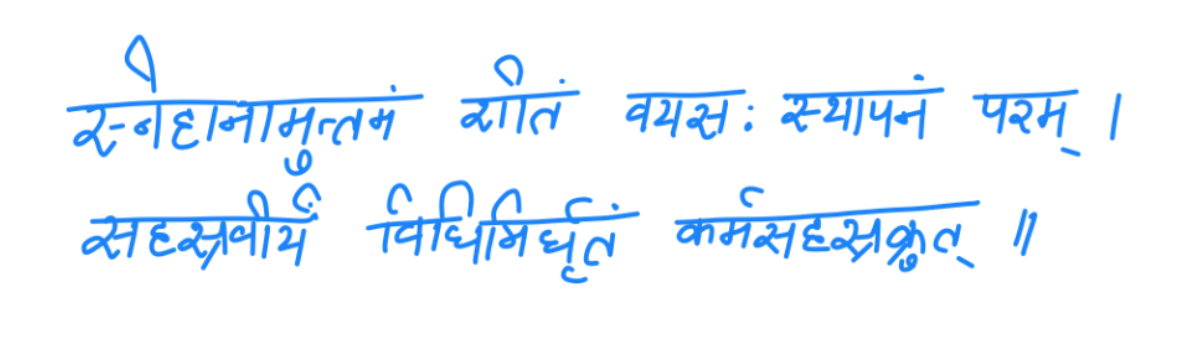 स्नेहानामुत्तमं शीतं वयसः स्थापनं परम् ।
सहस्रवीर्यं विधिभिर्घृतं कर्मसहस्रकृत् ॥